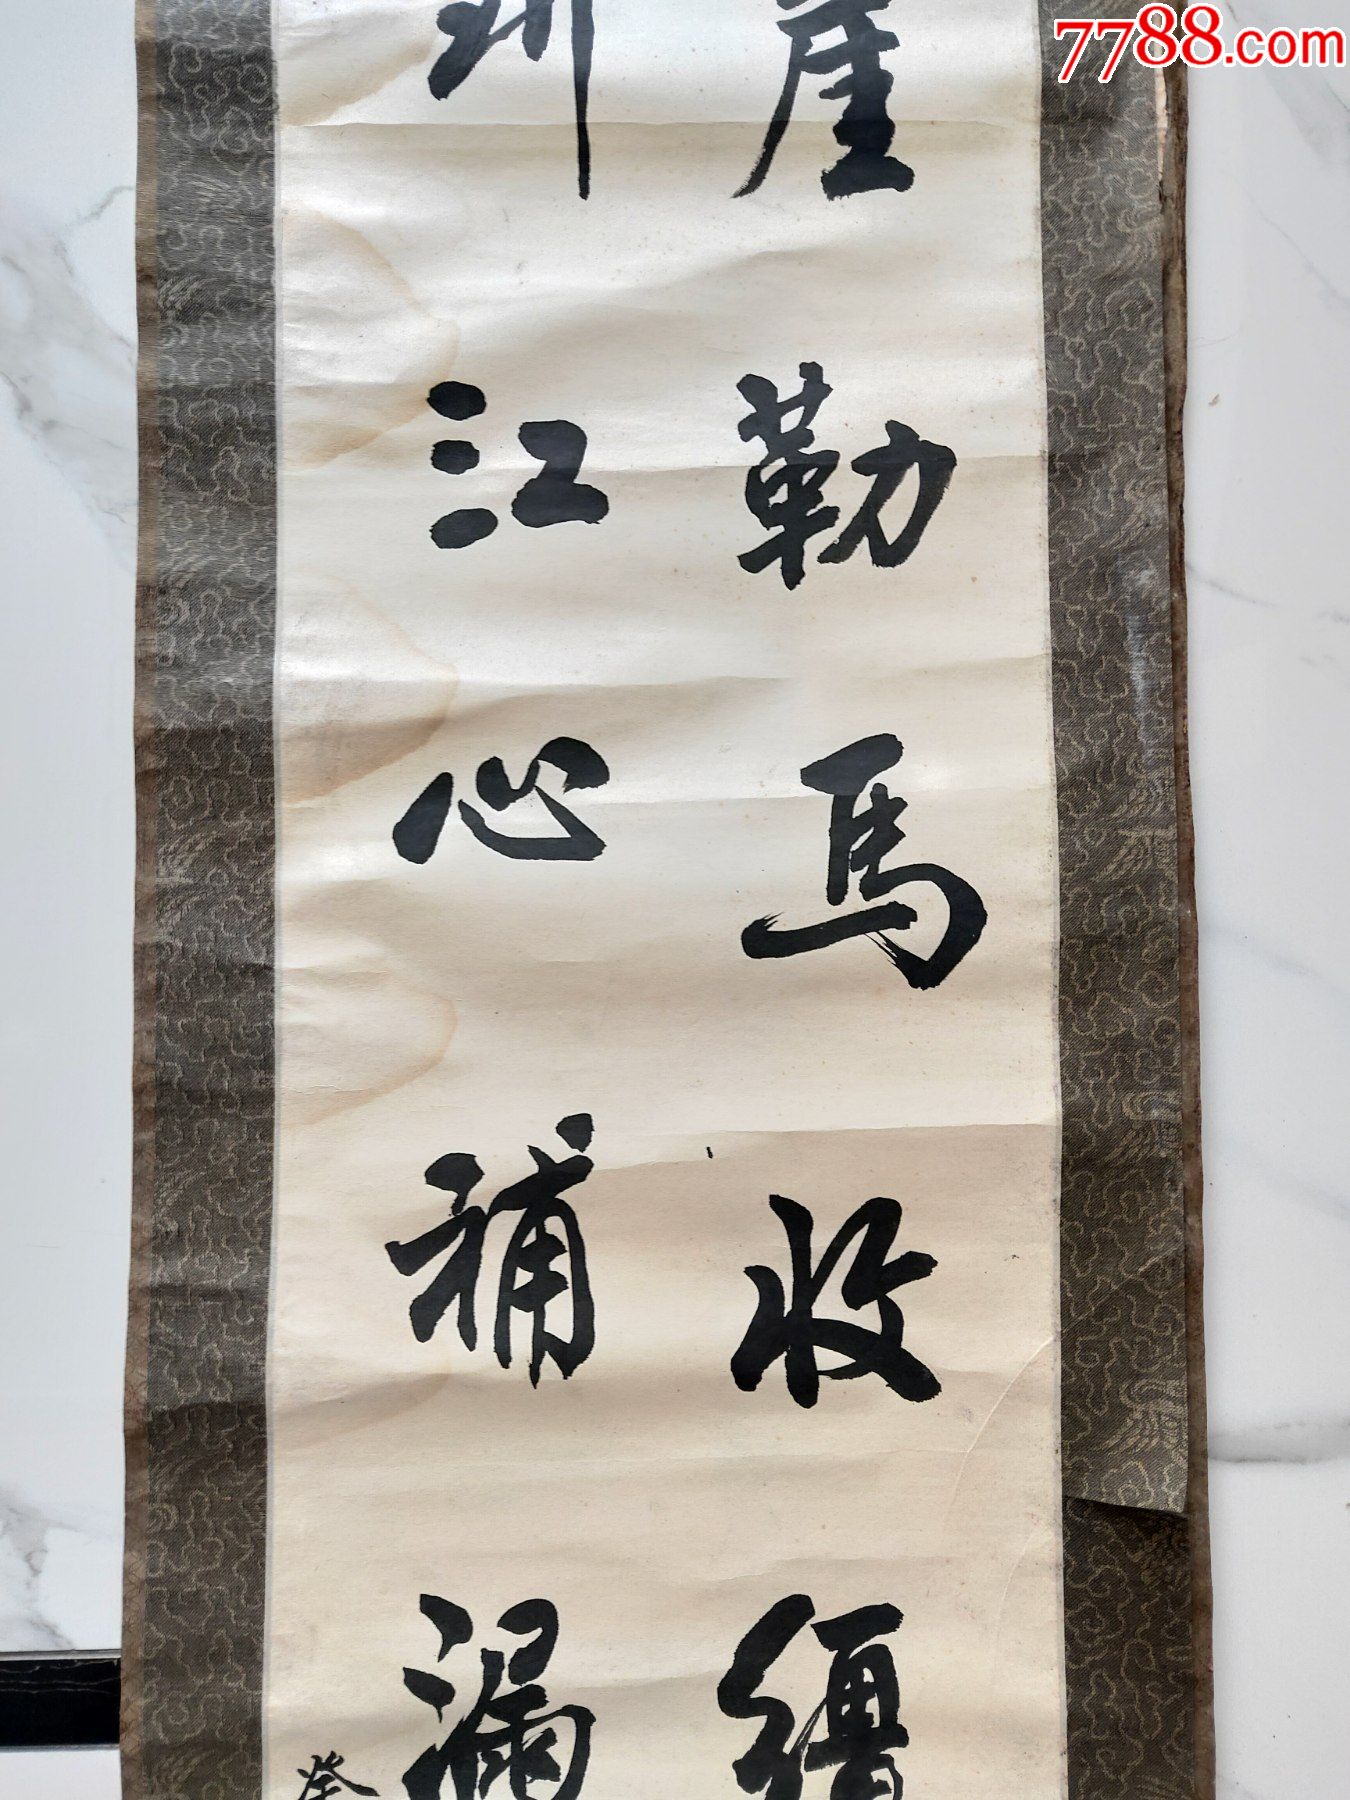 7788.com
崖勒馬收繮
到江心補漏
癸